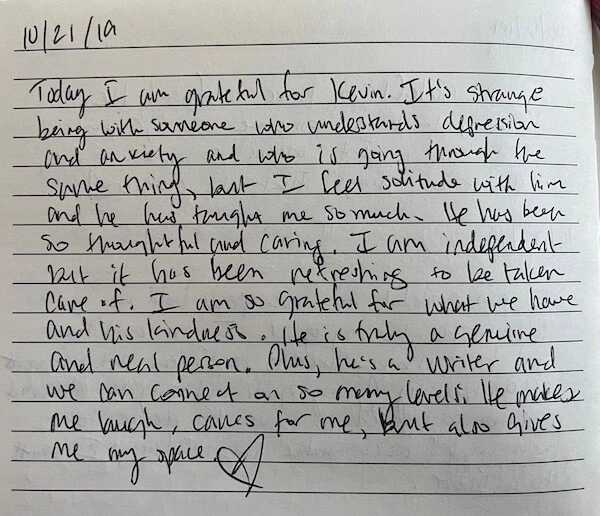 10/21/19
Today I am grateful for Kevin. It's strange
being with someone who understands depression
and anxiety and who is going through the
same thing, but I feel solitude with him
and he has taught me so much. He has been
so thoughtful and caring. I am independent
but it has been refreshing to be taken
care of. I am so grateful for what we have
and his kindness. He is truly a genuine
and real person. Plus, he's a writer and
we can connect on so many levels. He makes
me laugh, cares for me, but also gives
me my space